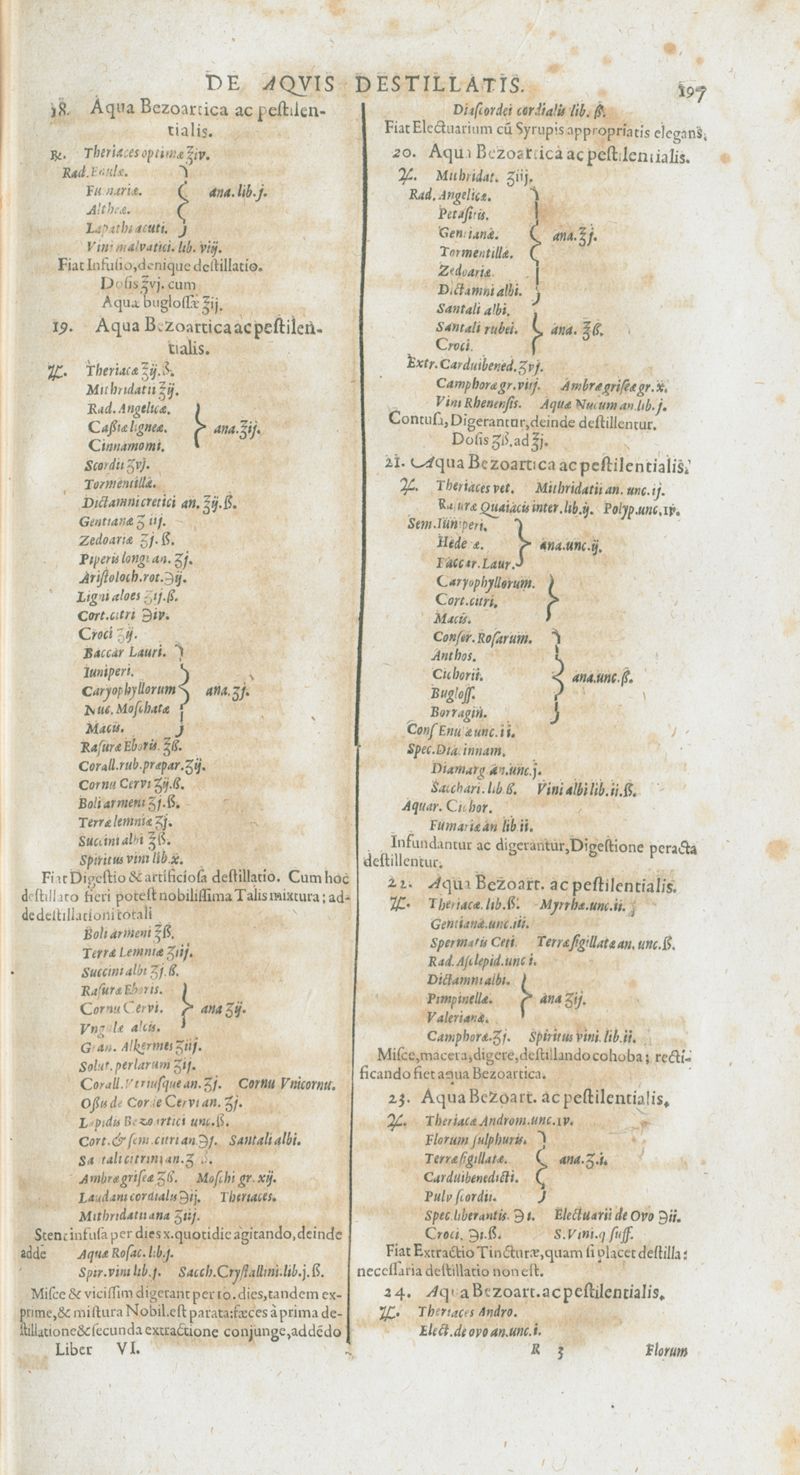 DE AQVIS DESTILLATIS. 197
18. Aqua Bezoartica ac pestilen-
tialis.
℞. Theriaces optimæ ℥iv.
Rad. Enulæ.
Fumariæ. ana. lib. j.
Altheæ.
Lapathi acuti.
Vini malvatici. lib. viij.
Fiat Infusio, denique destillatio.
Dosis ℥vj. cum
Aquæ buglossæ ℥ij.
19. Aqua Bezoartica ac pestilen-
tialis.
℞. Theriacæ ℥ij.ß.
Mithridatii ℥ij.
Rad. Angelicæ.
Caßiæ ligneæ. ana. ℥ij.
Cinnamomi.
Scordii ʒvj.
Tormentillæ.
Dictamni cretici an. ℥ij.ß.
Gentianæ ʒ iij.
Zedoariæ ʒj.ß.
Piperis longi an. ʒj.
Aristoloch. rot. ℈ij.
Ligni aloes ʒij.ß.
Cort. citri ℈iv.
Croci ʒij.
Baccar Lauri.
Iuniperi.
Caryophyllorum ana. ʒj.
Nuc. Moschatæ
Macis.
Rasuræ Eboris ℥ß.
Corall. rub. præpar. ʒij.
Cornu Cervi ʒij.ß.
Boli armeni ʒj.ß.
Terræ lemniæ ʒj.
Succini albi ℥ß.
Spiritus vini lib. x.
Fiat Digestio & artificiosa destillatio. Cum hoc
destillato fieri potest nobilissima Talis mixtura; ad-
de destillationi totali
Boli armeni ℥ß.
Terræ Lemniæ ʒiij.
Succini albi ʒj.ß.
Rasuræ Eboris.
Cornu Cervi. ana ʒij.
Vngulæ alcis.
Gran. Alkermes ʒiij.
Solut. perlarum ʒij.
Corall. Vtriusque an. ʒj. Cornu Vnicornu.
Oßis de Corde Cervi an. ʒj.
Lapidis Bezoartici unc.ß.
Cort. & sem. citri an. ℈j. Santali albi.
Santali citrini an. ʒ ß.
Ambræ griseæ ʒß. Moschi gr. xij.
Laudani cordialis ℈ij. Theriaces.
Mithridatii ana ʒiij.
Stent infusa per dies x. quotidie agitando, deinde
adde Aquæ Rosac. lib. j.
Spir. vini lib. j. Sacch. Crystallini. lib. j.ß.
Misce & vicissim digerant per 10. dies, tandem ex-
prime, & mistura Nobil. est parata: fæces à prima de-
stillatione & secunda extractione conjunge, addẽdo
Liber VI.
Diascordei cordialis lib. ß.
Fiat Electuarium cũ Syrupis appropriatis elegans.
20. Aqua Bezoartica ac pestilentialis.
℞. Mithridat. ʒiij.
Rad. Angelicæ.
Petasitis.
Gentianæ. ana. ℥j.
Tormentillæ.
Zedoariæ.
Dictamni albi.
Santali albi.
Santali rubei. ana. ℥ß.
Croci.
Extr. Cardui bened. ʒvj.
Camphoræ gr. viij. Ambræ griseæ gr. x.
Vini Rhenensis. Aquæ Nucum an. lib. j.
Contusa, Digerantur, deinde destillentur.
Dosis ʒß. ad ℥j.
21. Aqua Bezoartica ac pestilentialis.
℞. Theriaces vet. Mithridatii an. unc. ij.
Rasuræ Quaiacis inter. lib. ij. Polyp. unc. iv.
Sem. Iuniperi.
Hederæ. ana. unc. ij.
Baccar. Laur.
Caryophyllorum.
Cort. citri.
Macis.
Conser. Rosarum.
Anthos.
Cichorii. ana. unc. ß.
Bugloss.
Borragin.
Cons. Enulæ unc. ii.
Spec. Dia. innam.
Diamarg. an. unc. j.
Sacchari. lib ß. Vini albi lib. ii.ß.
Aquar. Cichor.
Fumariæ an lib ii.
Infundantur ac digerantur, Digestione peracta
destillentur.
22. Aqua Bezoart. ac pestilentialis.
℞. Theriacæ. lib. ß. Myrrhæ. unc. ii.
Gentianæ. unc. iii.
Spermatis Ceti. Terræ sigillatæ an. unc. ß.
Rad. Asclepid. unc i.
Dictamni albi.
Pimpinellæ. ana ʒij.
Valerianæ.
Camphoræ. ʒj. Spiritus vini. lib. ii.
Misce, macera, digere, destillando cohoba; recti-
ficando fiet aqua Bezoartica.
23. Aqua Bezoart. ac pestilentialis.
℞. Theriacæ Androm. unc. iv.
Florum sulphuris.
Terræ sigillatæ. ana. ʒ. i.
Cardui benedicti.
Pulv scordii.
Spec. liberantis. ℈ i. Electuarii de Ovo ℈ii.
Croci. ℈i.ß. S. Vini. q suff.
Fiat Extractio Tincturæ, quam si placet destilla:
necessaria destillatio non est.
24. Aqua Bezoart. ac pestilentialis.
℞. Theriaces Andro.
Elect. de ovo an. unc. i.
R 3 Florum